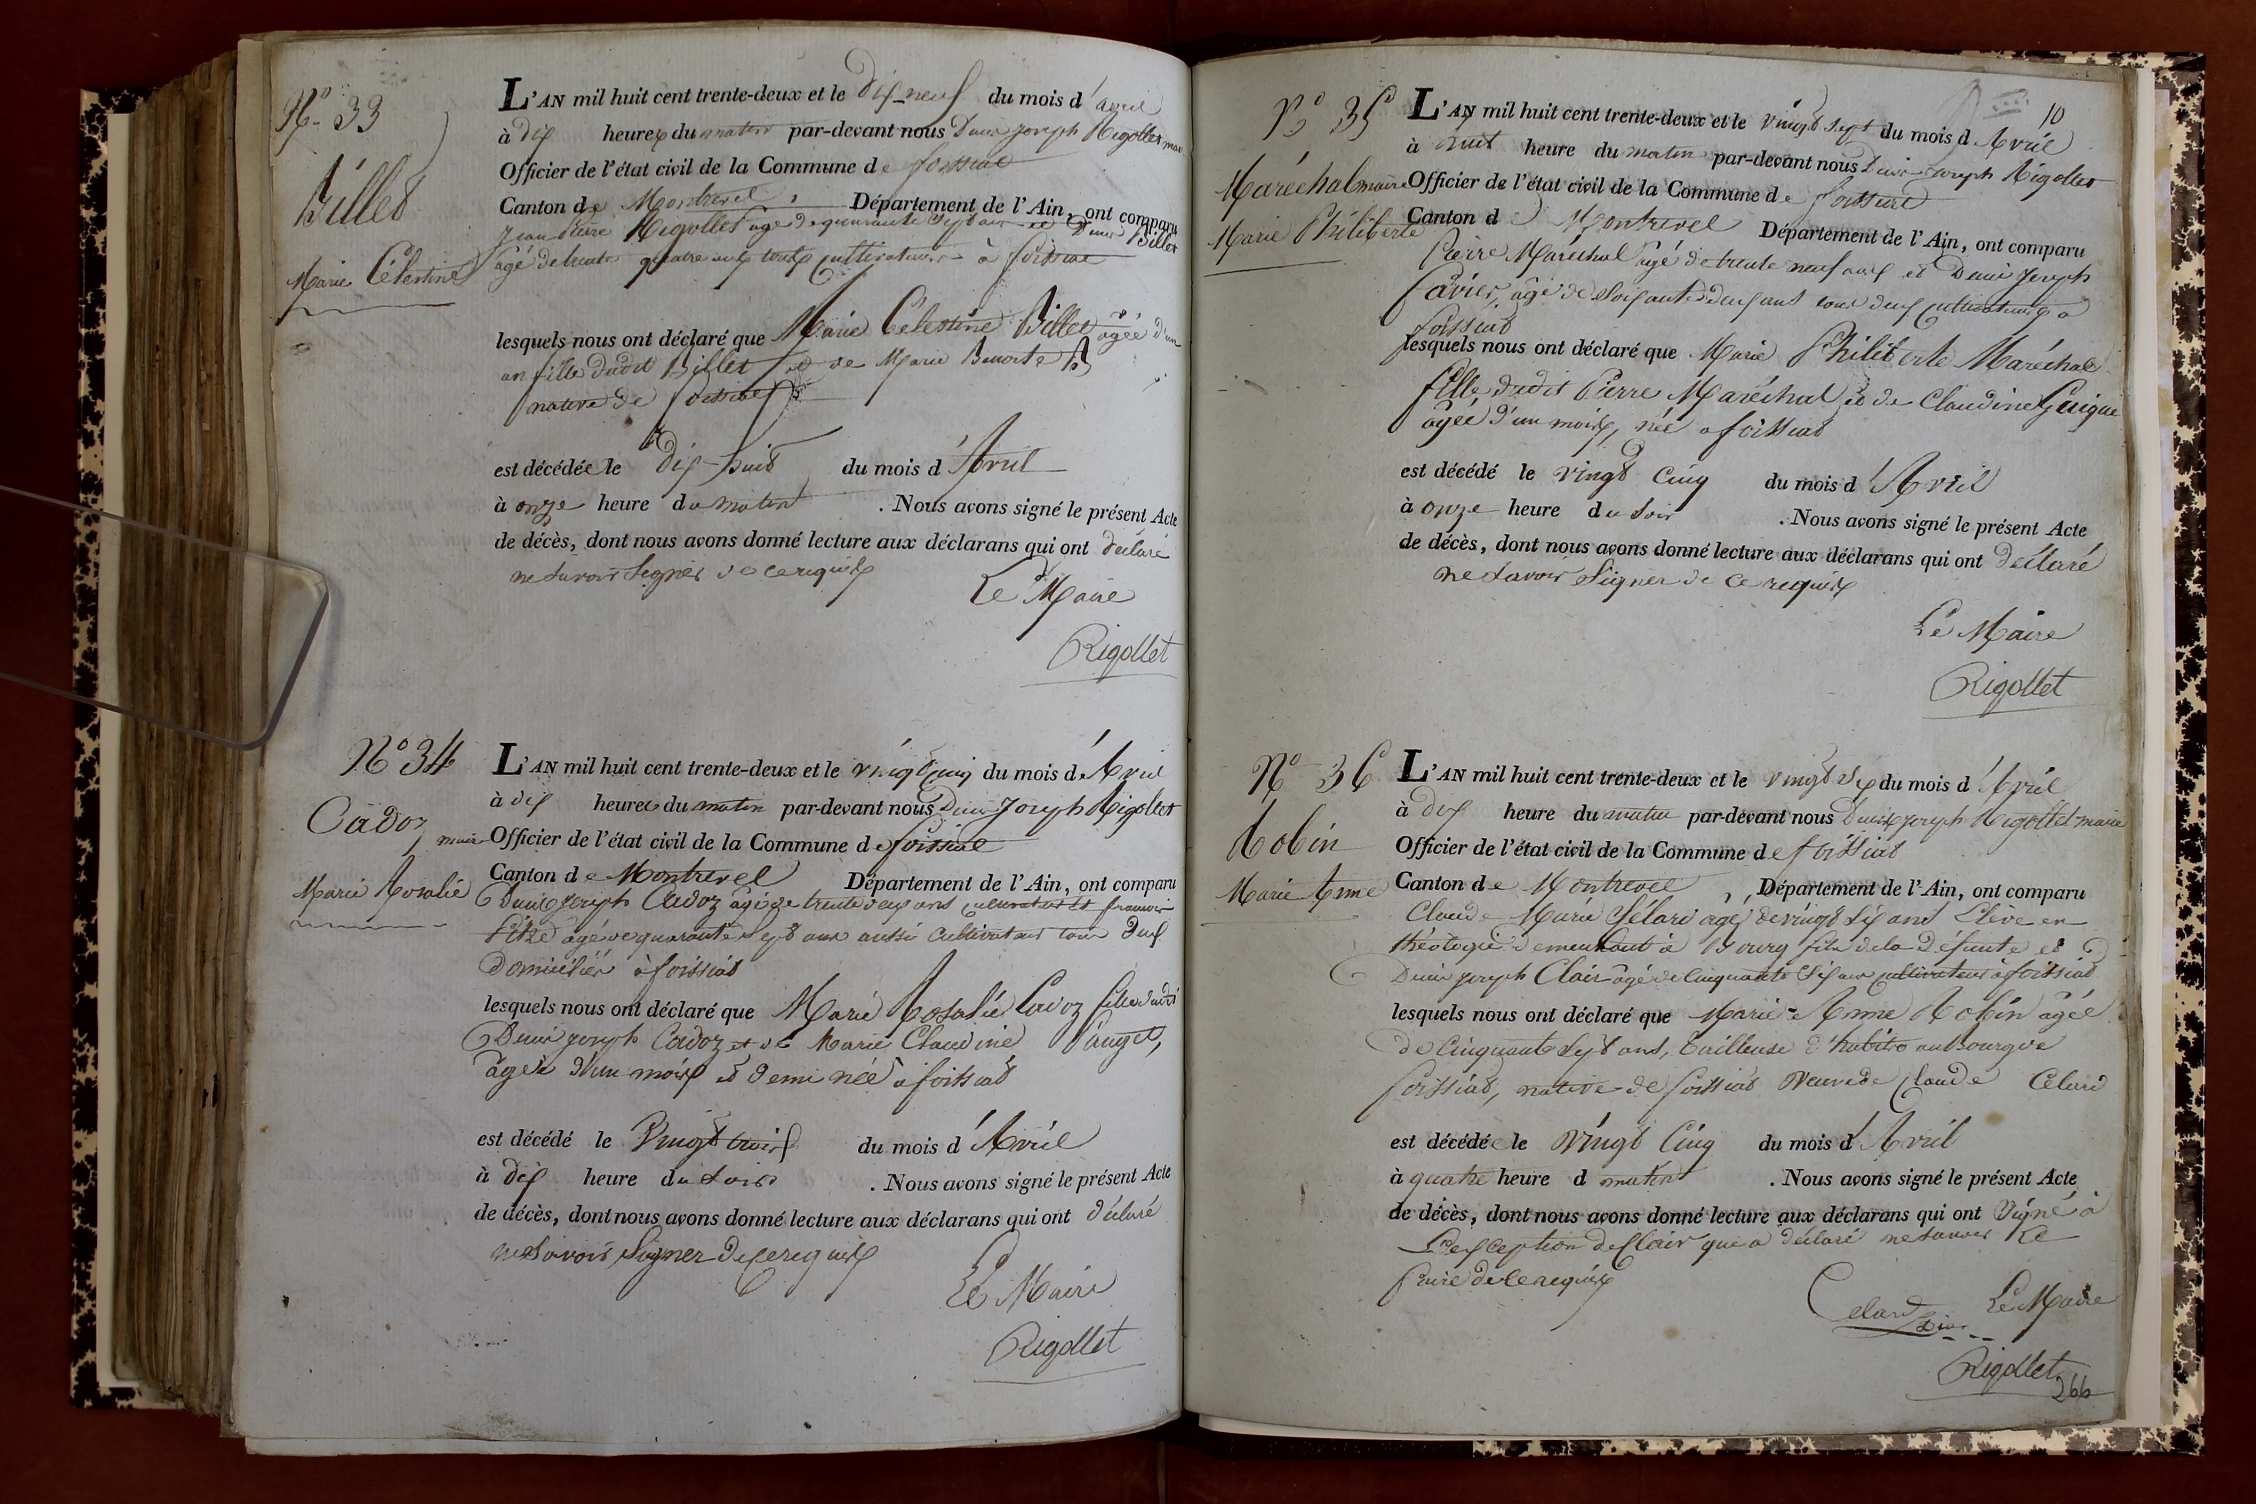 N.º 33
Billet
Marie Célestine
L'AN mil huit cent trente-deux et le dix-neuf du mois d'avril
à dix heures du matin par-devant nous Denis joseph Rigollet maire
Officier de l'état civil de la Commune de foissiat
Canton de Montrevel Département de l'Ain, ont comparu
jean Rigollet agé de quarante sept ans et Billet
âgé de trente quatre ans cultivateurs à foissiat
lesquels nous ont déclaré que Marie Célestine Billet agée d'un
an fille dudit Billet et de Marie
native de foissiat
est décédée le dix-huit du mois d'Avril
à onze heure du matin . Nous avons signé le présent Acte
de décès, dont nous avons donné lecture aux déclarans qui ont déclaré
ne savoir signer de ce requis
Le Maire
Rigollet
Nº 34
Cadoz
Marie Rosalie
L'AN mil huit cent trente-deux et le vingt cinq du mois d'Avril
à dix heures du matin par-devant nous Denis Joseph Rigollet
maire Officier de l'état civil de la Commune de foissiat
Canton de Montrevel Département de l'Ain, ont comparu
Denis joseph Cadoz agé de trente deux ans cultivateur et francois
agé de quarante sept ans aussi cultivateur tous deux
domiciliés à foissiat
lesquels nous ont déclaré que Marie Rosalie Cadoz fille dudit
Denis joseph Cadoz et de Marie Claudine Pauget,
âgée d'un mois et demi née à foissiat
est décédé le Vingt trois du mois d'Avril
à dix heure du soir . Nous avons signé le présent Acte
de décès, dont nous avons donné lecture aux déclarans qui ont déclaré
ne savoir signer de ce requis
Le Maire
Rigollet
10
Nº 35
Maréchal
Marie Philiberte
L'AN mil huit cent trente-deux et le vingt sept du mois d'Avril
à huit heure du matin par-devant nous Denis joseph Rigollet
maire Officier de l'état civil de la Commune de foissiat
Canton de Montrevel Département de l'Ain, ont comparu
Pierre Maréchal âgé de trente neuf ans et Denis joseph
favier, âgé de soixante deux ans tous deux cultivateurs à
foissiat
lesquels nous ont déclaré que Marie Philiberte Maréchal
fille dudit Pierre Maréchal et de Claudine Guigue
âgée d'un mois, née à foissiat
est décédé le vingt cinq du mois d'Avril
à onze heure du soir . Nous avons signé le présent Acte
de décès, dont nous avons donné lecture aux déclarans qui ont déclaré
ne savoir signer de ce requis
Le Maire
Rigollet
Nº 36
Robin
Marie Anne
L'AN mil huit cent trente-deux et le vingt six du mois d'Avril
à dix heure du matin par-devant nous Denis joseph Rigollet maire
Officier de l'état civil de la Commune de foissiat
Canton de Montrevel, Département de l'Ain, ont comparu
Claude Marie Célard âgé de vingt six ans Elève en
théologie demeurant à Bourg fils de la défunte et
Denis joseph Clair âgé de cinquante six ans cultivateur à foissiat
lesquels nous ont déclaré que Marie Anne Robin agée
de cinquante sept ans, tailleuse d'habits au bourg de
foissiat, native de foissiat veuve de Claude Célard
est décédée le vingt Cinq du mois d'Avril
à quatre heure d matin . Nous avons signé le présent Acte
de décès, dont nous avons donné lecture aux déclarans qui ont signé à
L'exception de Clair qui a déclaré ne savoir le
faire de ce requis
Celard
Le Maire
Rigollet
266